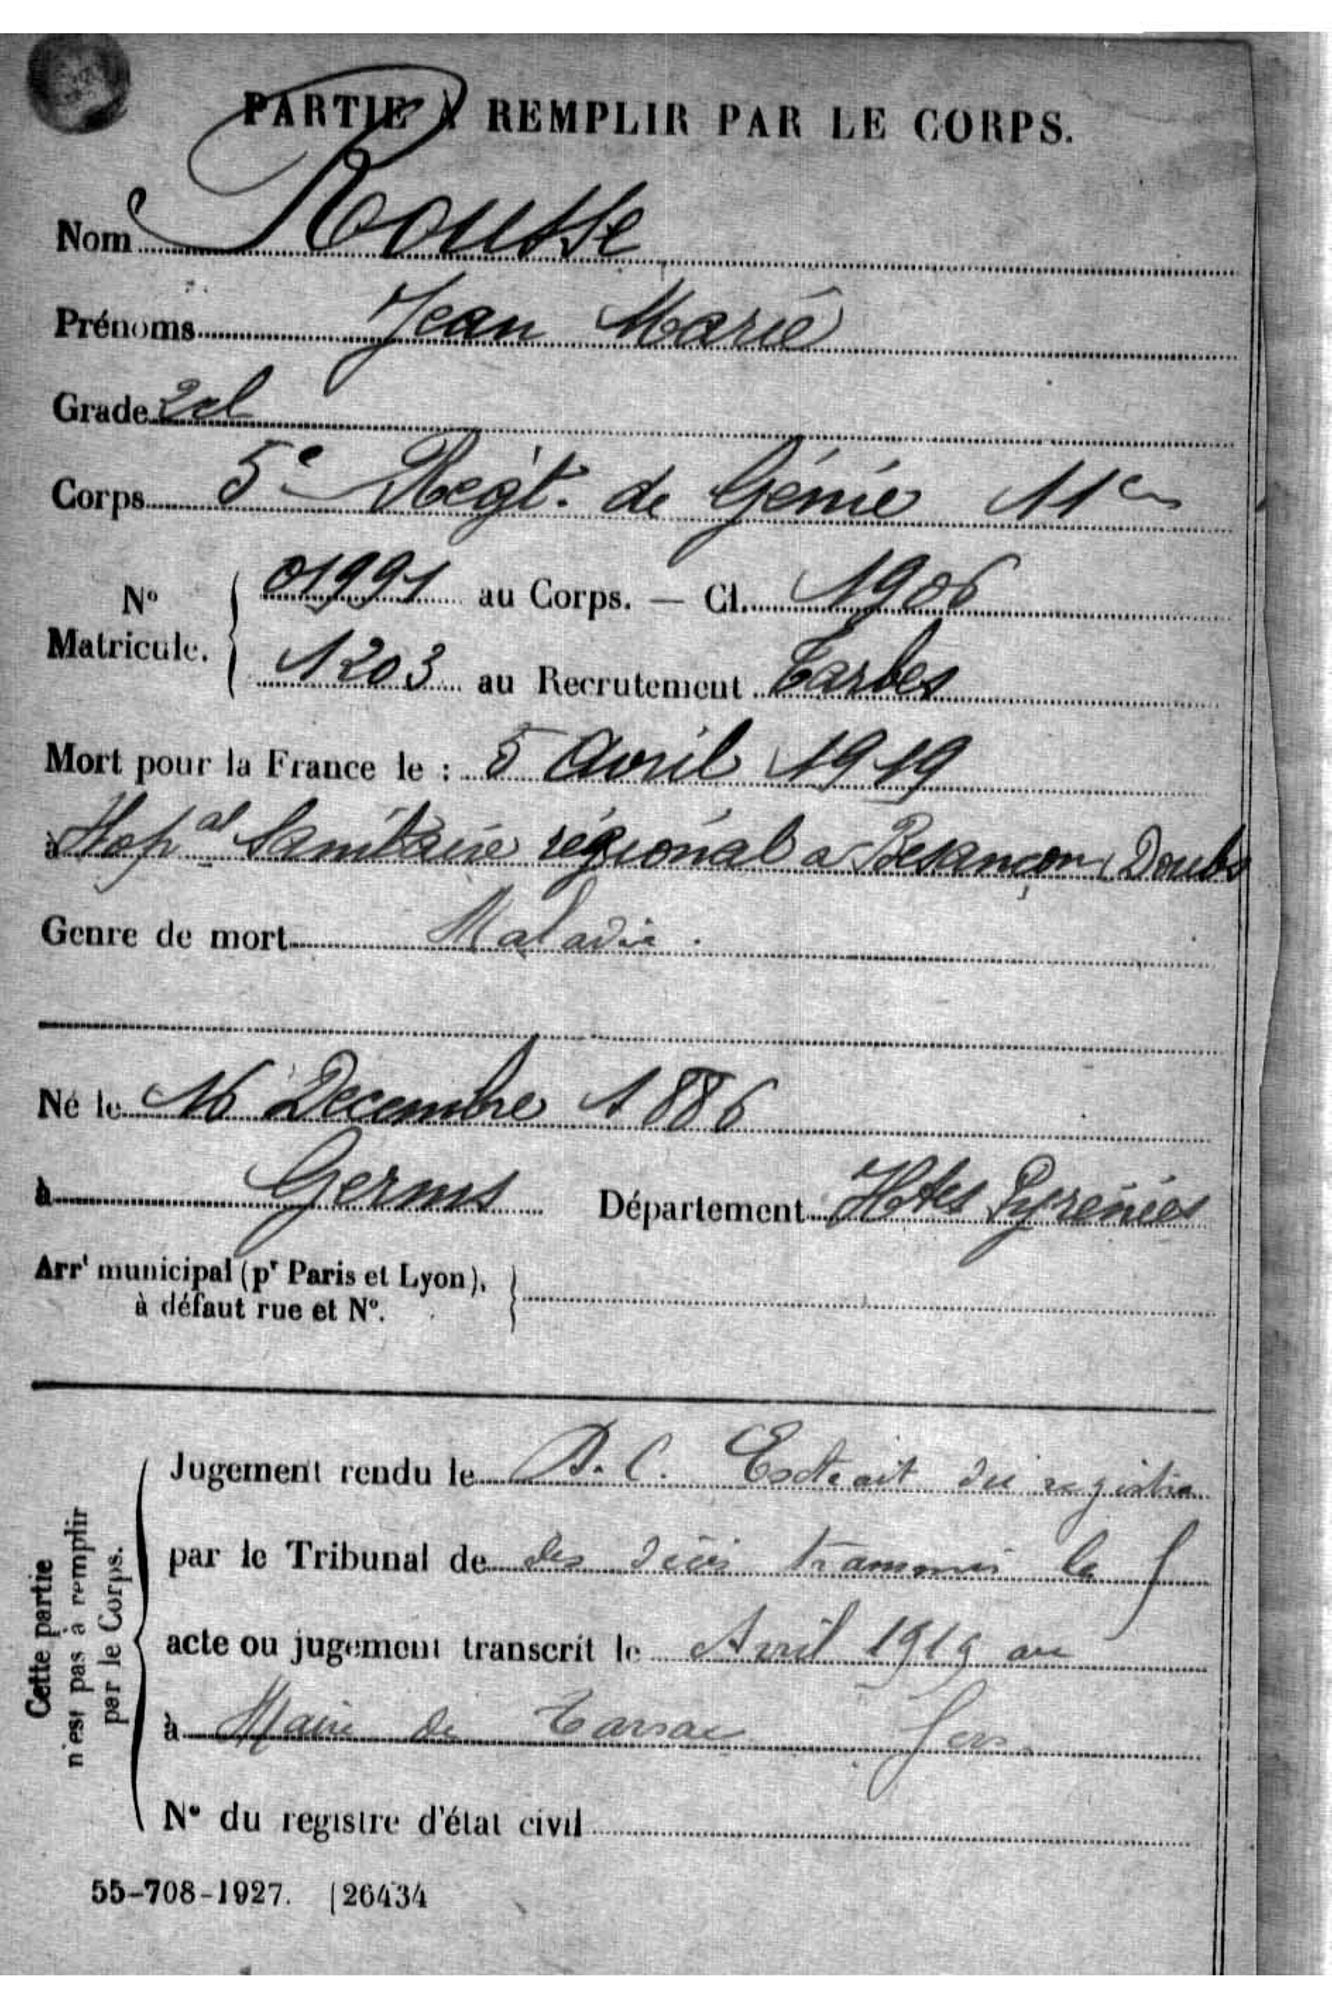 PARTIE À REMPLIR PAR LE CORPS.
Nom Rousse
Prénoms Jean Marie
Grade 2cl
Corps 5e Regt. de Génie 11e
No Matricule. 01991 au Corps. — Cl. 1906
1203 au Recrutement Tarbes
Mort pour la France le : 5 Avril 1919
à Hopal Sanitaire régional a Besançon Doubs
Genre de mort Maladie.
Né le 16 Decembre 1886
à Germs Département Htes Pyrénées
Arrt municipal (pr Paris et Lyon), à défaut rue et No.
Cette partie n'est pas à remplir par le Corps.
Jugement rendu le D. C. Extrait du registre
par le Tribunal de des décès transmis le
acte ou jugement transcrit le Avril 1919 au
à Maire de Tarsac Gers
No du registre d'état civil
55-708-1927. [26434